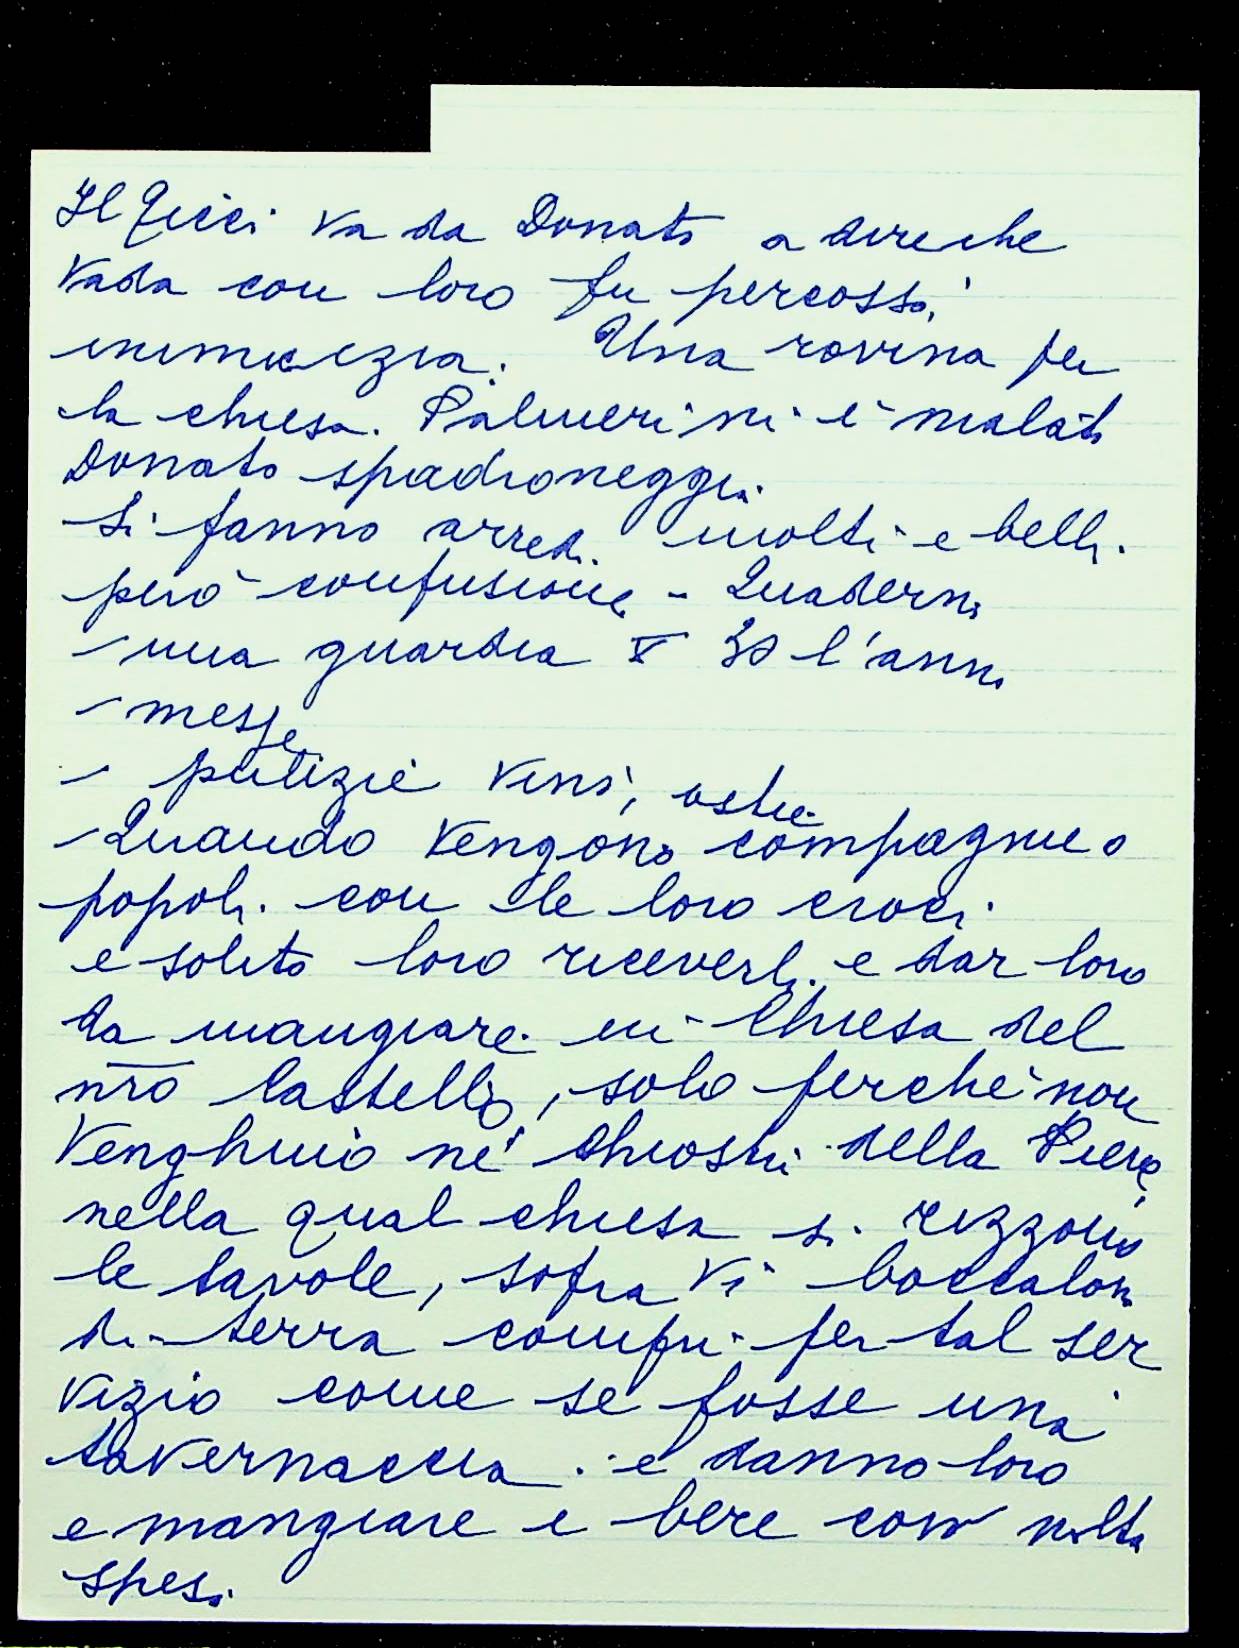 Il Ricci va da Donato a dire che
vada con loro fu percosso,
inimicizia. Una rovina per
la chiesa. Palmerini è malato
Donato spadroneggia.
Si fanno arredi. molti e belli.
però confusione - Quaderni
- una guardia V 30 l'anno
- messe
- pulizie vino, ostie
- Quando vengono compagnie o
popoli. con le loro croci
e solito loro riceverli e dar loro
da mangiare in Chiesa del
nro Castello, solo perché non
venghino ne' Chiostri della Pieve,
nella qual chiesa si rizzono
le tavole, sopra vi boccaloni
di terra compri per tal ser
vizio come se fosse una
tavernaccia. e danno loro
e mangiare e bere con molta
spesa